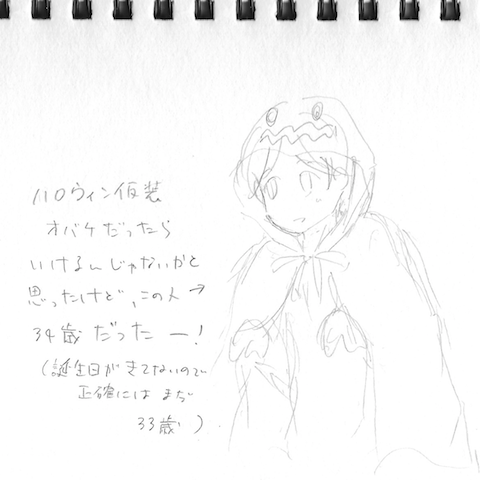 ハロウィン仮装
オバケだったら
いけるんじゃないかと
思ったけど、この人→
34歳だったー!
(誕生日がきてないので
正確にはまだ
33歳)